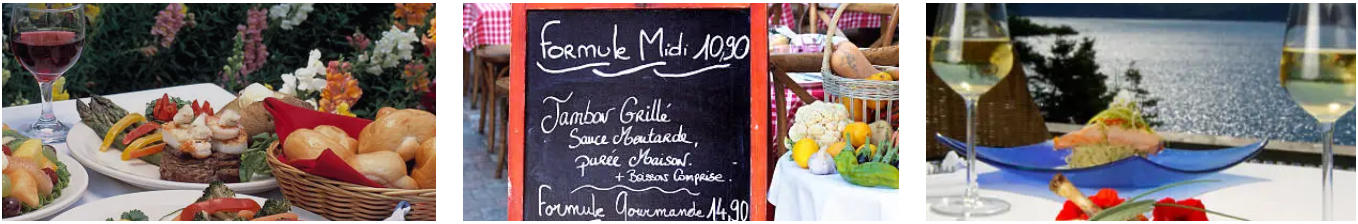 Formule Midi 10,90
Jambon Grillé
Sauce Moutarde,
purée Maison.
+ Boisson Comprise.
Formule Gourmande 14,90